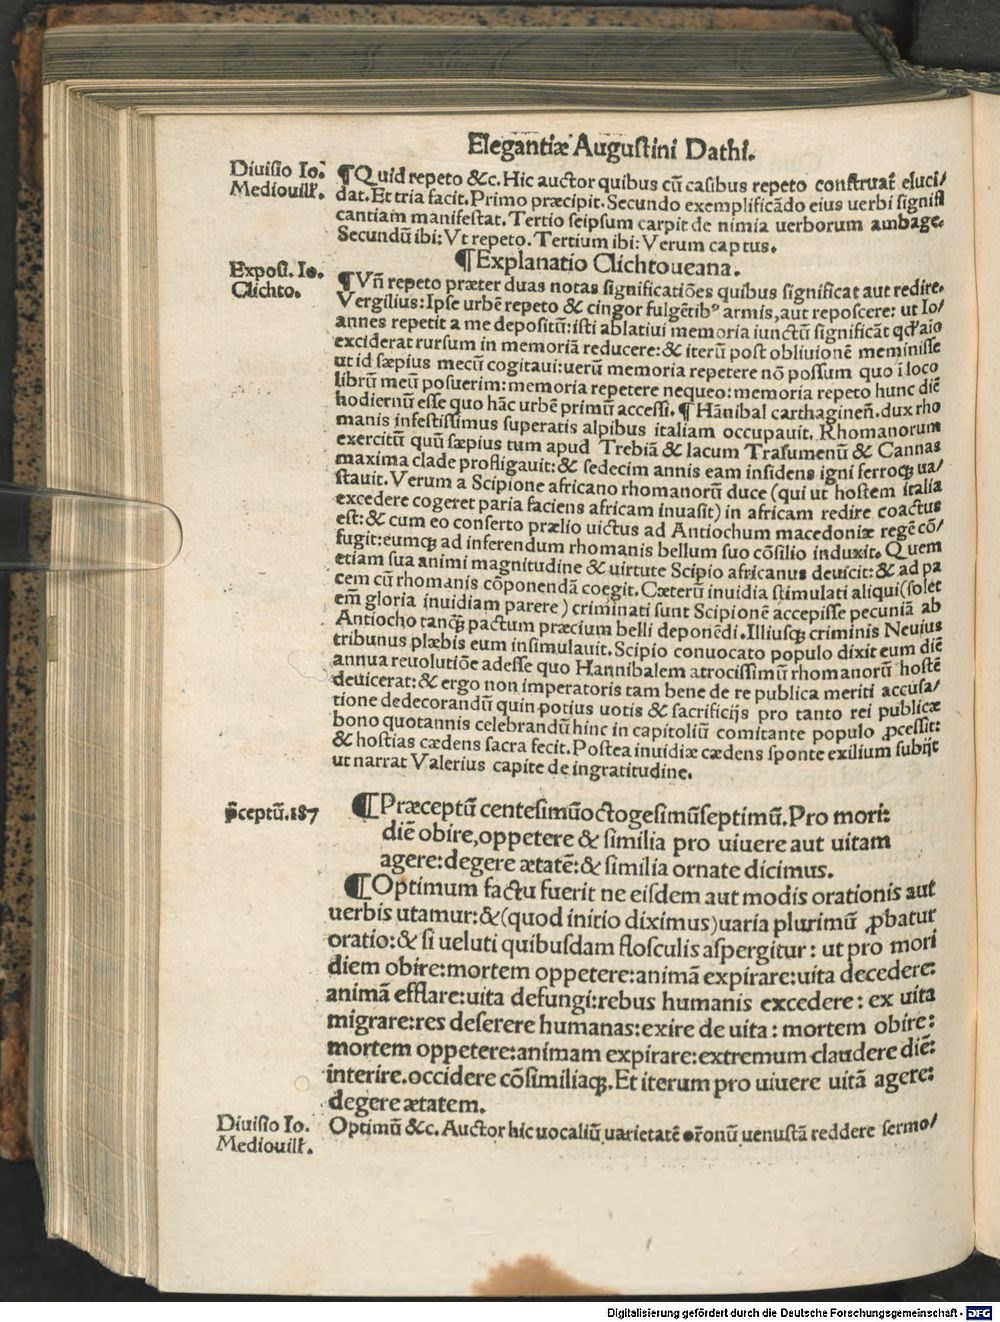 Elegantiæ Augustini Dathi.
Diuisio Io.
Mediouill̃.
¶Quid repeto &c. Hic auctor quibus cũ casibus repeto construat̃ eluci/
dat. Et tria facit. Primo præcipit. Secundo exemplificãdo eius uerbi signifi
cantiam manifestat. Tertio seipsum carpit de nimia uerborum ambage.
Secundũ ibi: Vt repeto. Tertium ibi: Verum captus.
¶Explanatio Clichtoueana.
Exposi. Io.
Clichto.
¶Vñ repeto præter duas notas significatiões quibus significat aut redire.
Vergilius: Ipse urbẽ repeto & cingor fulgẽtibꝰ armis, aut reposcere: ut Io/
annes repetit a me depositũ: isti ablatiui memoria iunctũ significãt qđ aĩo
exciderat rursum in memoriã reducere: & iterũ post obliuionẽ meminisse
ut id sæpius mecũ cogitaui: uerũ memoria repetere nõ possum quo ĩ loco
librũ meũ posuerim: memoria repetere nequeo: memoria repeto hunc diẽ
hodiernũ esse quo hãc urbẽ primũ accessi. ¶ Hãnibal carthagineñ. dux rho
manis infestissimus superatis alpibus italiam occupauit. Rhomanorum
exercitũ quũ sæpius tum apud Trebiã & lacum Trasumenũ & Cannas
maxima clade profligauit: & sedecim annis eam insidens igni ferroqꝫ ua/
stauit. Verum a Scipione africano rhomanorũ duce (qui ut hostem italia
excedere cogeret paria faciens africam inuasit) in africam redire coactus
est: & cum eo conserto prælio uictus ad Antiochum macedoniæ regẽ cõ/
fugit: eumqꝫ ad inferendum rhomanis bellum suo cõsilio induxit. Quem
etiam sua animi magnitudine & uirtute Scipio africanus deuicit: & ad pa
cem cũ rhomanis cõponendã coegit. Cæterũ inuidia stimulati aliqui (solet
em̃ gloria inuidiam parere) criminati sunt Scipionẽ accepisse pecuniã ab
Antiocho tanqꝫ pactum præcium belli deponẽdi. Illiusqꝫ criminis Neuius
tribunus plæbis eum insimulauit. Scipio conuocato populo dixit eum diẽ
annua reuolutiõe adesse quo Hannibalem atrocissimũ rhomanorũ hostẽ
deuicerat: & ergo non imperatoris tam bene de re publica meriti accusa/
tione dedecorandũ quin potius uotis & sacrificijs pro tanto rei publicæ
bono quotannis celebrandũ hinc in capitoliũ comitante populo ꝓcessit:
& hostias cædens sacra fecit. Postea inuidiæ cædens sponte exilium subijt
ut narrat Valerius capite de ingratitudine.
p̃ceptũ. 187
¶Præceptũ centesimũoctogesimũseptimũ. Pro mori:
diẽ obire, oppetere & similia pro uiuere aut uitam
agere: degere ætatẽ: & similia ornate dicimus.
¶Optimum factu fuerit ne eisdem aut modis orationis aut
uerbis utamur: & (quod initio diximus) uaria plurimũ ꝓbatur
oratio: & si ueluti quibusdam flosculis aspergitur: ut pro mori
diem obire: mortem oppetere: animã expirare: uita decedere:
animã efflare: uita defungi: rebus humanis excedere: ex uita
migrare: res deserere humanas: exire de uita: mortem obire:
mortem oppetere: animam expirare: extremum claudere diẽ:
interire. occidere cõsimiliaqꝫ. Et iterum pro uiuere uitã agere:
degere ætatem.
Diuisio Io.
Mediouill̃.
Optimũ &c. Auctor hic uocaliũ uarietatẽ or̃onũ uenustã reddere sermo/
Digitalisierung gefördert durch die Deutsche Forschungsgemeinschaft - DFG